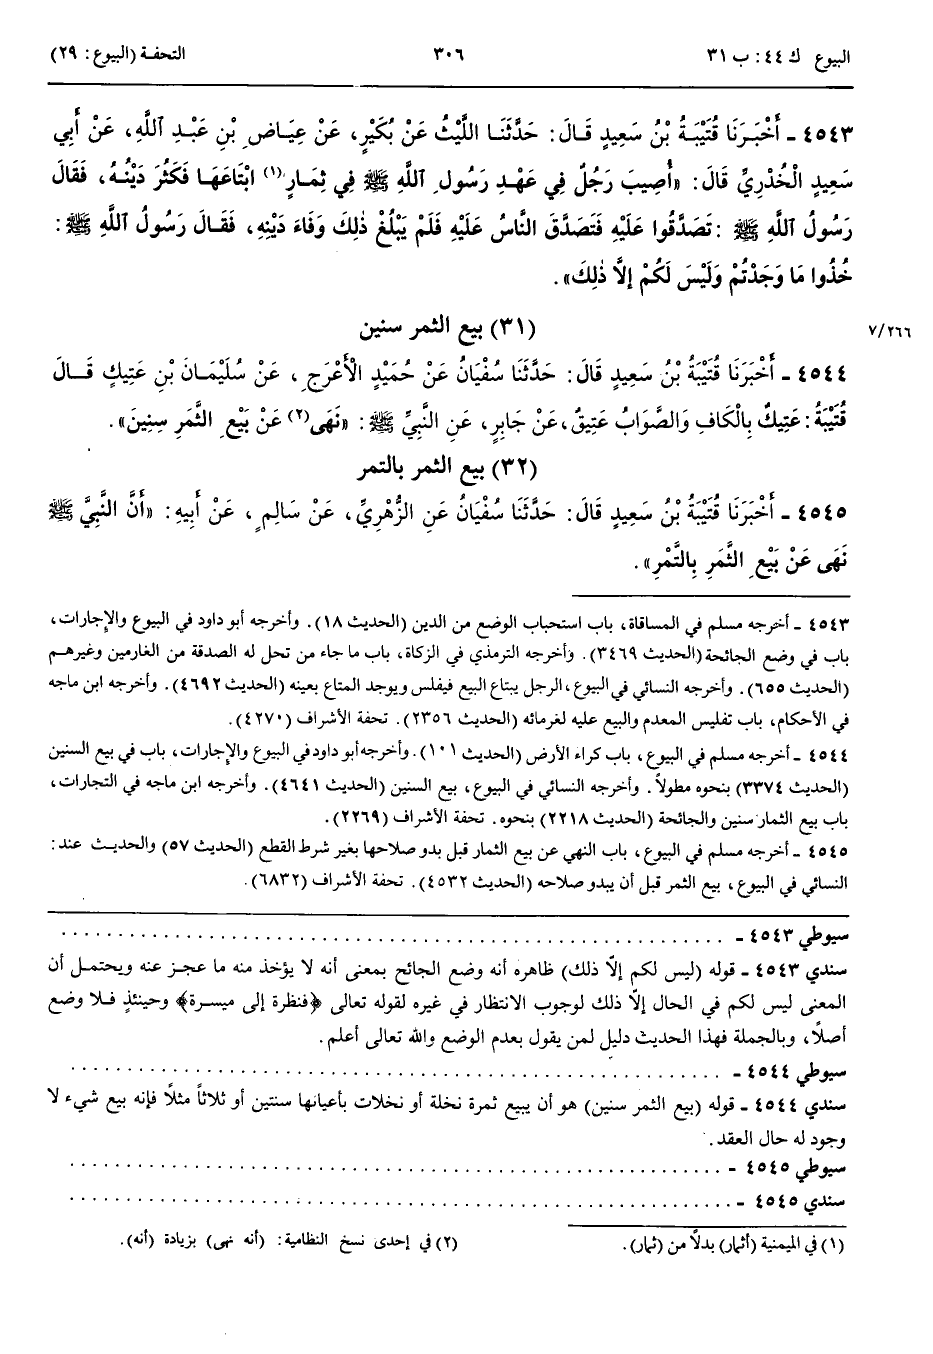 البيوع ك ٤٤: ب ٣١
٣٠٦
التحفة (البيوع: ٢٩)
٤٥٤٣ ـ أَخْبَرَنَا قُتَيْبَةُ بْنُ سَعِيدٍ قَالَ: حَدَّثَنَا اللَّيْثُ عَنْ بُكَيْرٍ، عَنْ عِيَاضِ بْنِ عَبْدِ ٱللَّهِ، عَنْ أَبِي
سَعِيدٍ الْخُدْرِيِّ قَالَ: «أُصِيبَ رَجُلٌ فِي عَهْدِ رَسُولِ ٱللَّهِ ﷺ فِي ثِمَارٍ(١) ابْتَاعَهَا فَكَثُرَ دَيْنُهُ، فَقَالَ
رَسُولُ ٱللَّهِ ﷺ: تَصَدَّقُوا عَلَيْهِ فَتَصَدَّقَ النَّاسُ عَلَيْهِ فَلَمْ يَبْلُغْ ذٰلِكَ وَفَاءَ دَيْنِهِ، فَقَالَ رَسُولُ ٱللَّهِ ﷺ:
خُذُوا مَا وَجَدْتُمْ وَلَيْسَ لَكُمْ إِلَّا ذٰلِكَ».
(٣١) بيع الثمر سنين
٧/٢٦٦
٤٥٤٤ ـ أَخْبَرَنَا قُتَيْبَةُ بْنُ سَعِيدٍ قَالَ: حَدَّثَنَا سُفْيَانُ عَنْ حُمَيْدٍ الْأَعْرَجِ، عَنْ سُلَيْمَانَ بْنِ عَتِيكٍ قَالَ
قُتَيْبَةُ: عَتِيكٌ بِالْكَافِ وَالصَّوَابُ عَتِيقٌ، عَنْ جَابِرٍ، عَنِ النَّبِيِّ ﷺ: «نَهَى(٢) عَنْ بَيْعِ الثَّمَرِ سِنِينَ».
(٣٢) بيع الثمر بالتمر
٤٥٤٥ ـ أَخْبَرَنَا قُتَيْبَةُ بْنُ سَعِيدٍ قَالَ: حَدَّثَنَا سُفْيَانُ عَنِ الزُّهْرِيِّ، عَنْ سَالِمٍ، عَنْ أَبِيهِ: «أَنَّ النَّبِيَّ ﷺ
نَهَى عَنْ بَيْعِ الثَّمَرِ بِالتَّمْرِ».
٤٥٤٣ ـ أخرجه مسلم في المساقاة، باب استحباب الوضع من الدين (الحديث ١٨). وأخرجه أبو داود في البيوع والإجارات،
باب في وضع الجائحة (الحديث ٣٤٦٩). وأخرجه الترمذي في الزكاة، باب ما جاء من تحل له الصدقة من الغارمين وغيرهم
(الحديث ٦٥٥). وأخرجه النسائي في البيوع، الرجل يبتاع البيع فيفلس ويوجد المتاع بعينه (الحديث ٤٦٩٢). وأخرجه ابن ماجه
في الأحكام، باب تفليس المعدم والبيع عليه لغرمائه (الحديث ٢٣٥٦). تحفة الأشراف (٤٢٧٠).
٤٥٤٤ ـ أخرجه مسلم في البيوع، باب كراء الأرض (الحديث ١٠١). وأخرجه أبو داود في البيوع والإجارات، باب في بيع السنين
(الحديث ٣٣٧٤) بنحوه مطولاً. وأخرجه النسائي في البيوع، بيع السنين (الحديث ٤٦٤١). وأخرجه ابن ماجه في التجارات،
باب بيع الثمار سنين والجائحة (الحديث ٢٢١٨) بنحوه. تحفة الأشراف (٢٢٦٩).
٤٥٤٥ ـ أخرجه مسلم في البيوع، باب النهي عن بيع الثمار قبل بدو صلاحها بغير شرط القطع (الحديث ٥٧) والحديث عند:
النسائي في البيوع، بيع الثمر قبل أن يبدو صلاحه (الحديث ٤٥٣٢). تحفة الأشراف (٦٨٣٢).
سيوطي ٤٥٤٣ ـ ........................................................
سندي ٤٥٤٣ ـ قوله (ليس لكم إلّا ذلك) ظاهره أنه وضع الجائح بمعنى أنه لا يؤخذ منه ما عجز عنه ويحتمل أن
المعنى ليس لكم في الحال إلّا ذلك لوجوب الانتظار في غيره لقوله تعالى ﴿فنظرة إلى ميسرة﴾ وحينئذٍ فلا وضع
أصلاً، وبالجملة فهذا الحديث دليل لمن يقول بعدم الوضع والله تعالى أعلم.
سيوطي ٤٥٤٤ ـ ........................................................
سندي ٤٥٤٤ ـ قوله (بيع الثمر سنين) هو أن يبيع ثمرة نخلة أو نخلات بأعيانها سنتين أو ثلاثاً مثلاً فإنه بيع شيء لا
وجود له حال العقد.
سيوطي ٤٥٤٥ ـ ........................................................
سندي ٤٥٤٥ ـ ........................................................
(١) في الميمنية (أثمار) بدلاً من (ثمار).
(٢) في إحدى نسخ النظامية: (أنه نهى) بزيادة (أنه).